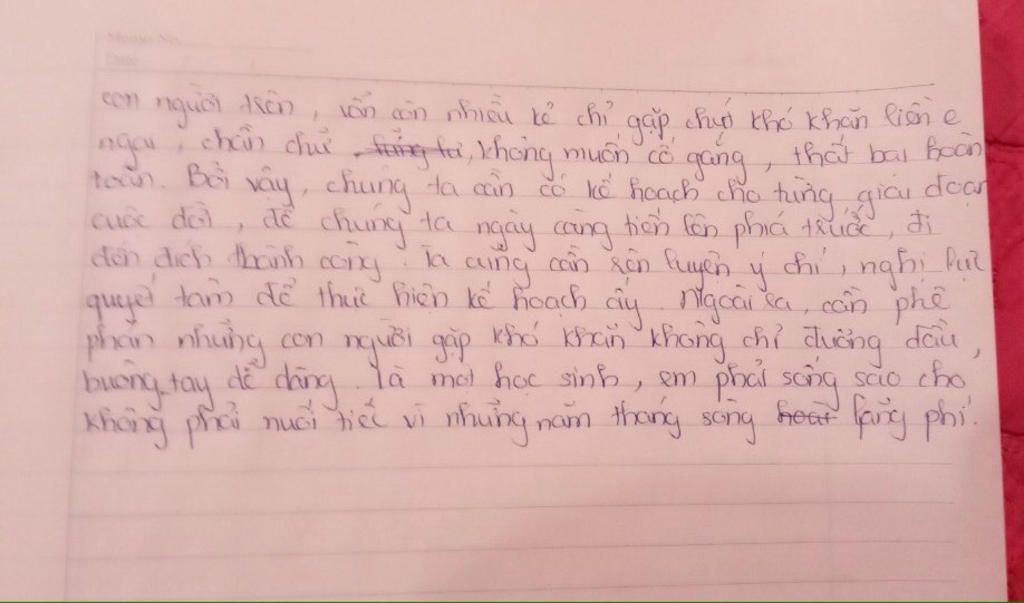 con người trên, vẫn còn nhiều kẻ chỉ gặp chút khó khăn liền e
ngại, chần chừ, không muốn cố gắng, thất bại hoàn
toàn. Bởi vậy, chúng ta cần có kế hoạch cho từng giai đoạn
cuộc đời, để chúng ta ngày càng tiến lên phía trước, đi
đến đích thành công. Ta cũng cần rèn luyện ý chí, nghị lực
quyết tâm để thực hiện kế hoạch ấy. Ngoài ra, cần phê
phán những con người gặp khó khăn không chỉ đường đầu,
buông tay dễ dàng. Là một học sinh, em phải sống sao cho
không phải nuối tiếc vì những năm tháng sống lãng phí.